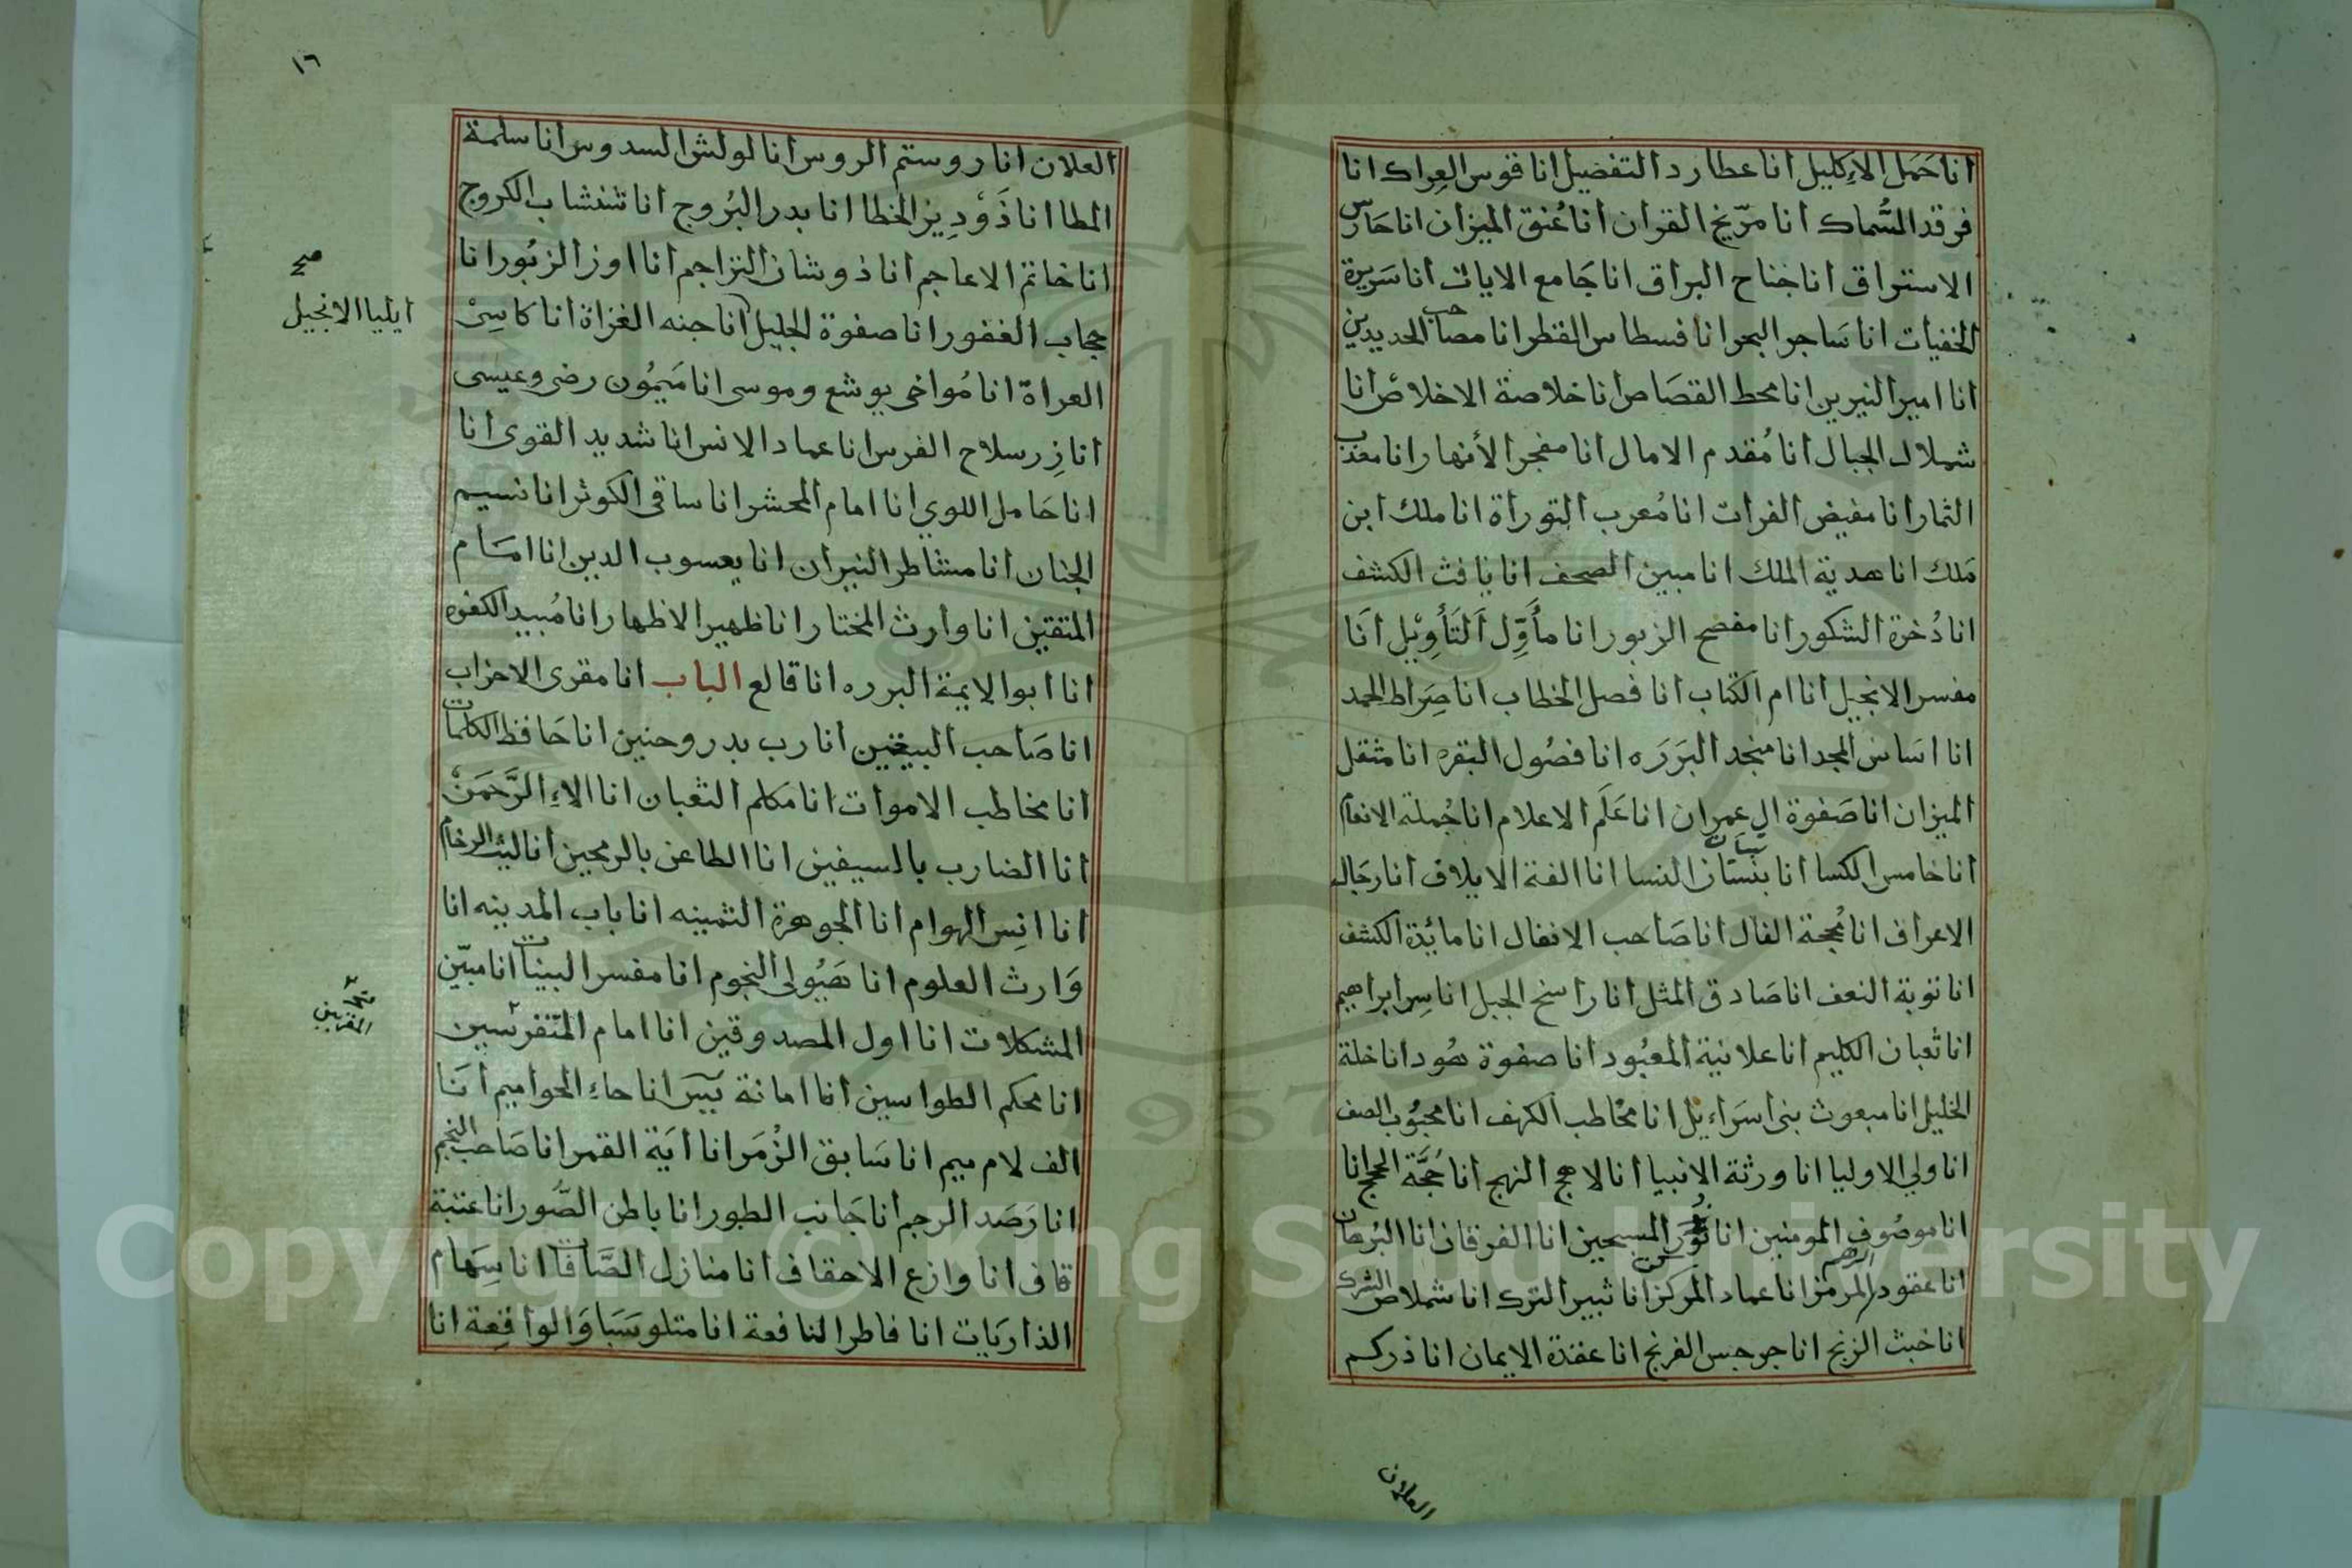 انا حَمَل الاِكليل انا عطارد التفضيل انا قوس العِراك انا
فرقد السُّماك انا مرّيخ القران انا عُنق الميزان انا حَارس
الاستراق انا جناح البراق انا جَامع الايات انا سَريرة
الخفيات انا سَاجر البحر انا قسطاس القطر انا مصاحب الحديدين
انا امير النيرين انا محط القصَاص انا خلاصة الاخلاص انا
شملال الجبال انا مُقدم الامال انا مفجر الأنهار انا معذب
الثمار انا مفيض الفرات انا مُعرب التوراة انا ملك ابن
مَلك انا هدية الملك انا مبين الصحف انا يافث الكشف
انا ذُخرة الشكور انا مفصح الزبور انا مأَوِّل اَلتَأوِيْل اَنَا
مفسر الانجيل انا ام الكتاب انا فصل الخطاب انا صِرَاط الحمد
انا اسَاس المجد انا منجد البَرَرَه انا فصُول البقره انا مثقل
الميزان انا صَفوة ال عمران انا عَلَم الاعلام انا جُملة الانعام
انا خامس الكسا انا تبيان النسا انا الفة الايلاف انا رجَال
الاعراف انا مُجحة الفال انا صَاحب الانفال انا مائدة الكشف
انا توبة النعف انا صَادق المثل انا راسخ الجبل انا سِر ابراهيم
انا ثعبان الكليم انا علانية المعبُود انا صفوة هُود انا خلة
الخليل انا مبعوث بنى اسَراءيل انا مخاطب الكهف انا محبُوب الصف
انا ولي الاوليا انا ورثة الانبيا انا لاهج النهج انا حُجَّة الحجج انا
انا موصُوف المومنين انا نُور المسبحين انا الفرقان انا البُرهان
انا عقود المرمز انا عماد المركز انا ثبير الترك انا شملاص الشرك
انا خبث الزنج انا جرجس الفرنج انا عقدة الايمان انا ذركم
العلان
١٦
العلان انا روستم الروس انا لولش السدوس انا سلمة
المطا انا ذَوْدِيز الخطا انا بدر البُروج انا شنشاب الكروج
انا خاتم الاعاجم انا ذوشان التراجم انا اوز الزبُور انا
حجاب الغفور انا صفوة الجليل انا جنه الغزاة انا كاسِىْ
صح
ايليا الانجيل
العراة انا مُواخى يوشع وموسى انا مَيمُون رضى وعيسى
انا زِر سلاح الفرس انا عماد الانس انا شديد القوى انا
انا حَامل اللوي انا امام المحشر انا ساقى الكوثر انا نسيم
الجنان انا مشاطر النيران انا يعسوب الدين انا امَام
المتقين انا وارث المختار انا ظهير الاظهار انا مُبيد الكفره
انا ابو الايمة البرره انا قالع الباب انا مقرى الاحزاب
انا صَاحب البيعتين انا رب بدر وحنين انا حَافظ الكلمات
انا مخاطب الاموات انا مكلم الثعبان انا الاءِ الرَّحمَنْ
انا الضارب بالسيفين انا الطاعن بالرمحين انا ليث الرخام
انا انِس الهوام انا الجوهرة الثمينه انا باب المدينه انا
وَارث العلوم انا هَيُولى النجوم انا مفسر البينات انا مبيّن
المشكلات انا اول المصدوقين انا امام المتفرسين
انا محكم الطواسين انا امانة يسَ انا حاء الحواميم اَنَا
الف لام ميم انا سَابق الزُمَر انا ايَة القمر انا صَاحب النجم
انا رَصَد الرجم انا جَانب الطور انا باطن الصُّور انا عتبة
قاف انا وازع الاحقاف انا منازل الصَّافات انا سِهَام
الذاريَات انا فاطر النافعة انا متلو سَبَا وَالواقِعة انا